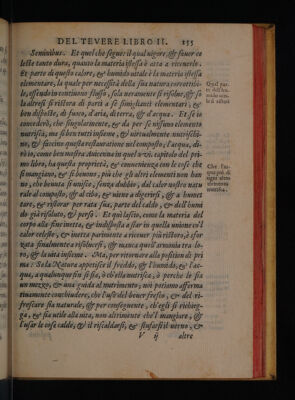 DEL TEVERE LIBRO II. 155
Seminibus. Et quel che segue: il qual uigore, & fauor ce
leste tanto dura, quanto la materia istessa è atta a riceuerlo.
Et parte di questo calore, & humido uitale è la materia istessa
elementare, la quale per necessità della sua natura corrotti-
bile, essendo in continuo flusso, sola uieramente si risolue, & so
la altresì si ristora di parti a se simiglianti elementari, &
ben disposte, di fuoco, d'aria, di terra, & d'acqua. Et se io
concederò, che singolarmente, & da per se nissuno elemento
nutrisca, ma si ben tutti insieme, & uirtualmente nutrischi-
no, & faccino questa restauratione nel composto; l'acqua, di-
rò io, come ben mostra Auicenna in quel capitolo del pri-
mo libro, ha questa proprietà, & conuenienza con le cose che
si mangiano, & si beuono, più che gli altri elementi non han
no, che beuuta si unisce, senza dubbio, dal calor nostro natu
rale al composto, & al cibo, & uiene a digerirsi, & a humet
tare, & ristorar per rata sua, parte del caldo, & dell'humi
do già risoluto, & perso. Et quì lascio, come la materia del
corpo alla fine inetta, & indisposta a star in quella unione col
calor celeste, & inetta parimente a riceuer più ristoro, è sfor
zata finalmente a risoluersi, & manca quell'armonia tra lo-
ro, & la uita insieme. Ma, per ritornare alla position di pri
ma: Se la Natura appetisce il freddo, & l'humido, & l'ac-
qua, a qualunque fin si sia, o ch'ella nutrisca, o perche le sia
un mezzo, & una guida al nutrimento; noi potiamo afferma
tiuamente conchiudere, che l'uso del beuer fresco, & del ri-
frescare sia naturale, & per conseguente, ch'egli si richieg-
ga, & sia utile alla uita, non altrimente che'l mangiare, &
l'usar le cose calde, & il riscaldarsi, & scusarsi il uerno, &
V ij altre
Qual par-
te dell'hu-
mido sola
si ristori
Che l'ac-
qua più di
ogni altro
elemento
nutrisca.